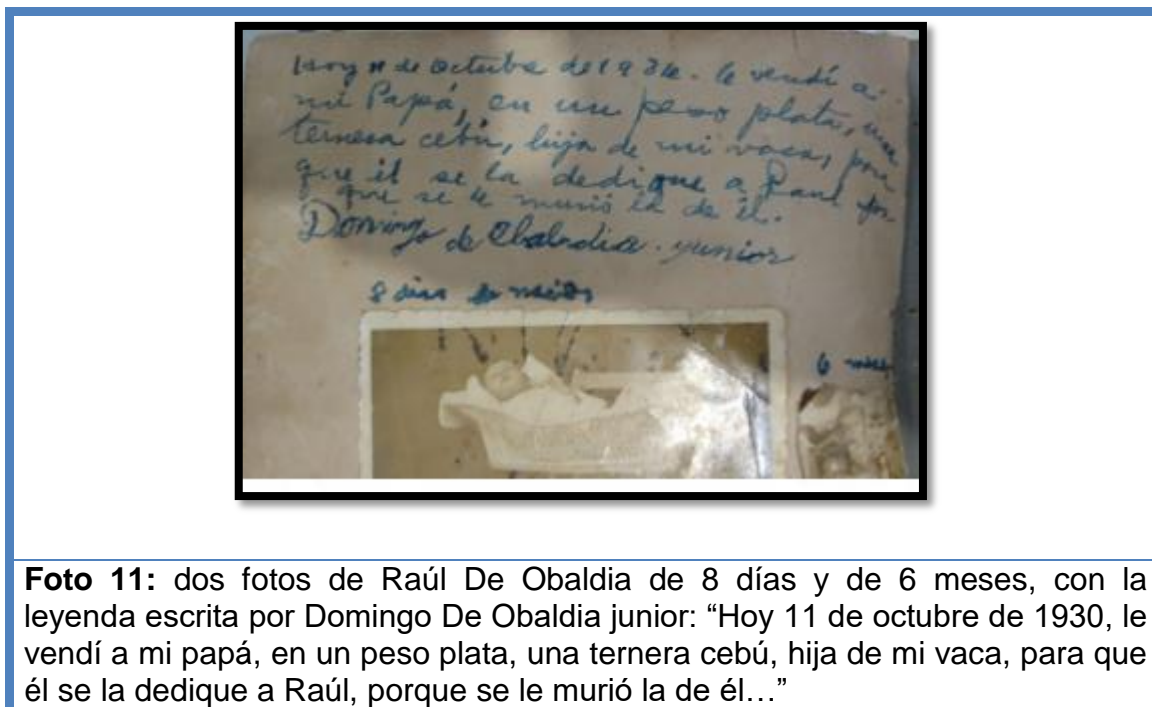 Hoy 11 de octubre de 193 . le vendí a
mi Papá, en un peso plata, una
ternera cebú, hija de mi vaca, para
que él se la dedique a Raul por
que se le murió la de él.
Domingo de Obaldia. yunior
8 dias de nacido
6 meses
Foto 11: dos fotos de Raúl De Obaldia de 8 días y de 6 meses, con la
leyenda escrita por Domingo De Obaldia junior: “Hoy 11 de octubre de 1930, le
vendí a mi papá, en un peso plata, una ternera cebú, hija de mi vaca, para que
él se la dedique a Raúl, porque se le murió la de él…”